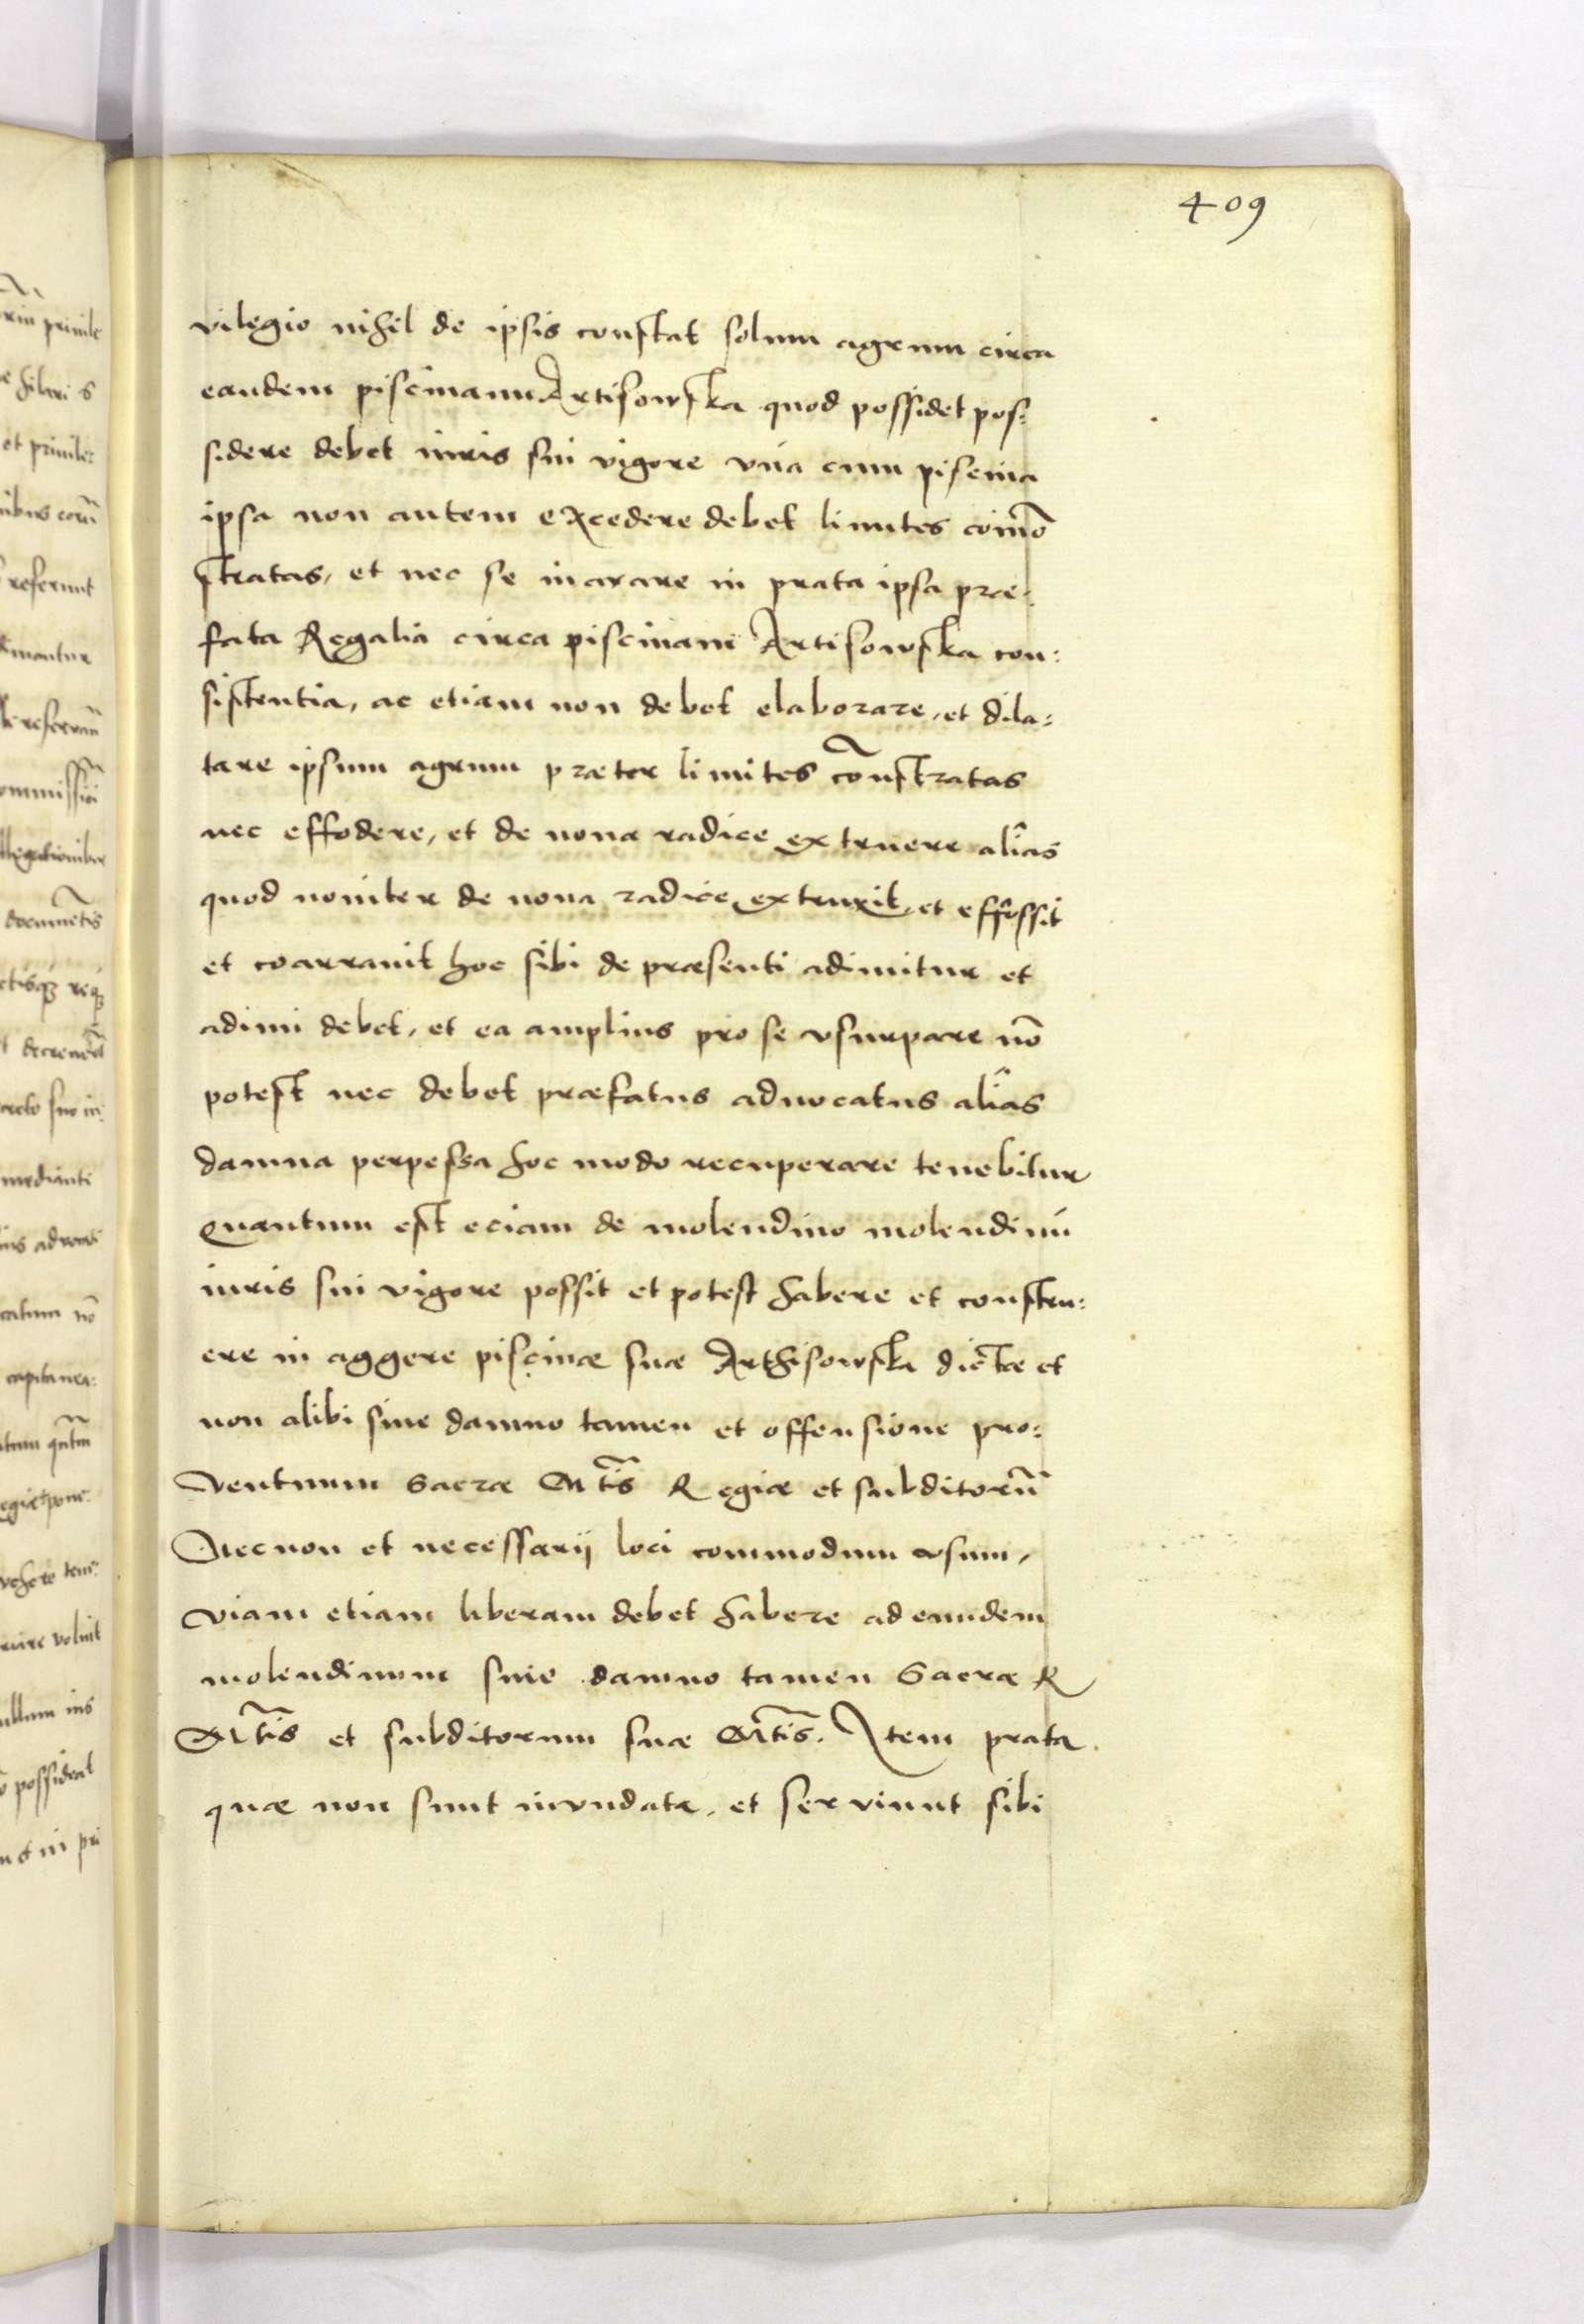 409
vilegio nihil de ipsis constat solum agrum circa
eandem piscinam Artisowska quod possidet pos:
sidere debet iuris sui vigore vna cum piscina
ipsa non autem excedere debet limites com̃o
stratas, et nec se inarare in prata ipsa præ:
fata Regalia circa piscinam Artisowska con:
sistentia, ac etiam non debet elaborare, et dila:
tare ipsum agrum præter limites cõnstratas
nec effodere, et de noua radice extruere alias
quod nouiter de noua radice extruxit, et effossit
et coarrauit hoc sibi de præsenti adimitur et
adimi debet, et ea amplius pro se vsurpare nõ
potest nec debet præfatus aduocatus alias
damna perpessa hoc modo recuperare tenebitur
Quantum est eciam de molendino molendinũ
iuris sui vigore possit et potest habere et constru:
ere in aggere piscinæ suæ Arthisowska dictæ et
non alibi sine damno tamen et offensione pro:
Ventuum Sacræ Mt̃is Regiæ et subditorũ
Necnon et necessarij loci commodum vsum,
Viam etiam liberam debet habere ad eundem
molendinum sine damno tamen Sacræ R
Mt̃is et subditorum suæ Mt̃is. Item prata
quæ non sunt invndata, et serviunt sibi